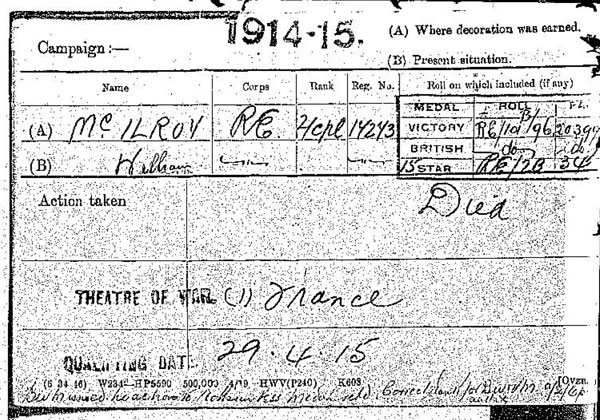 1914-15.
Campaign :—
(A) Where decoration was earned.
(B) Present situation.
Name Corps Rank Reg. No. Roll on which included (if any)
MEDAL ROLL
(A) McILROY RE 14243
VICTORY RE/101/B/96 20399
(B) William
BRITISH do do
15 STAR RE/7B 34
Action taken
Died
THEATRE OF WAR. (1) France
QUALIFYING DATE 29.4.15
(6 34 46) W234—HP5590 500,000 4/19 HWV(P240) K608
[OVER.